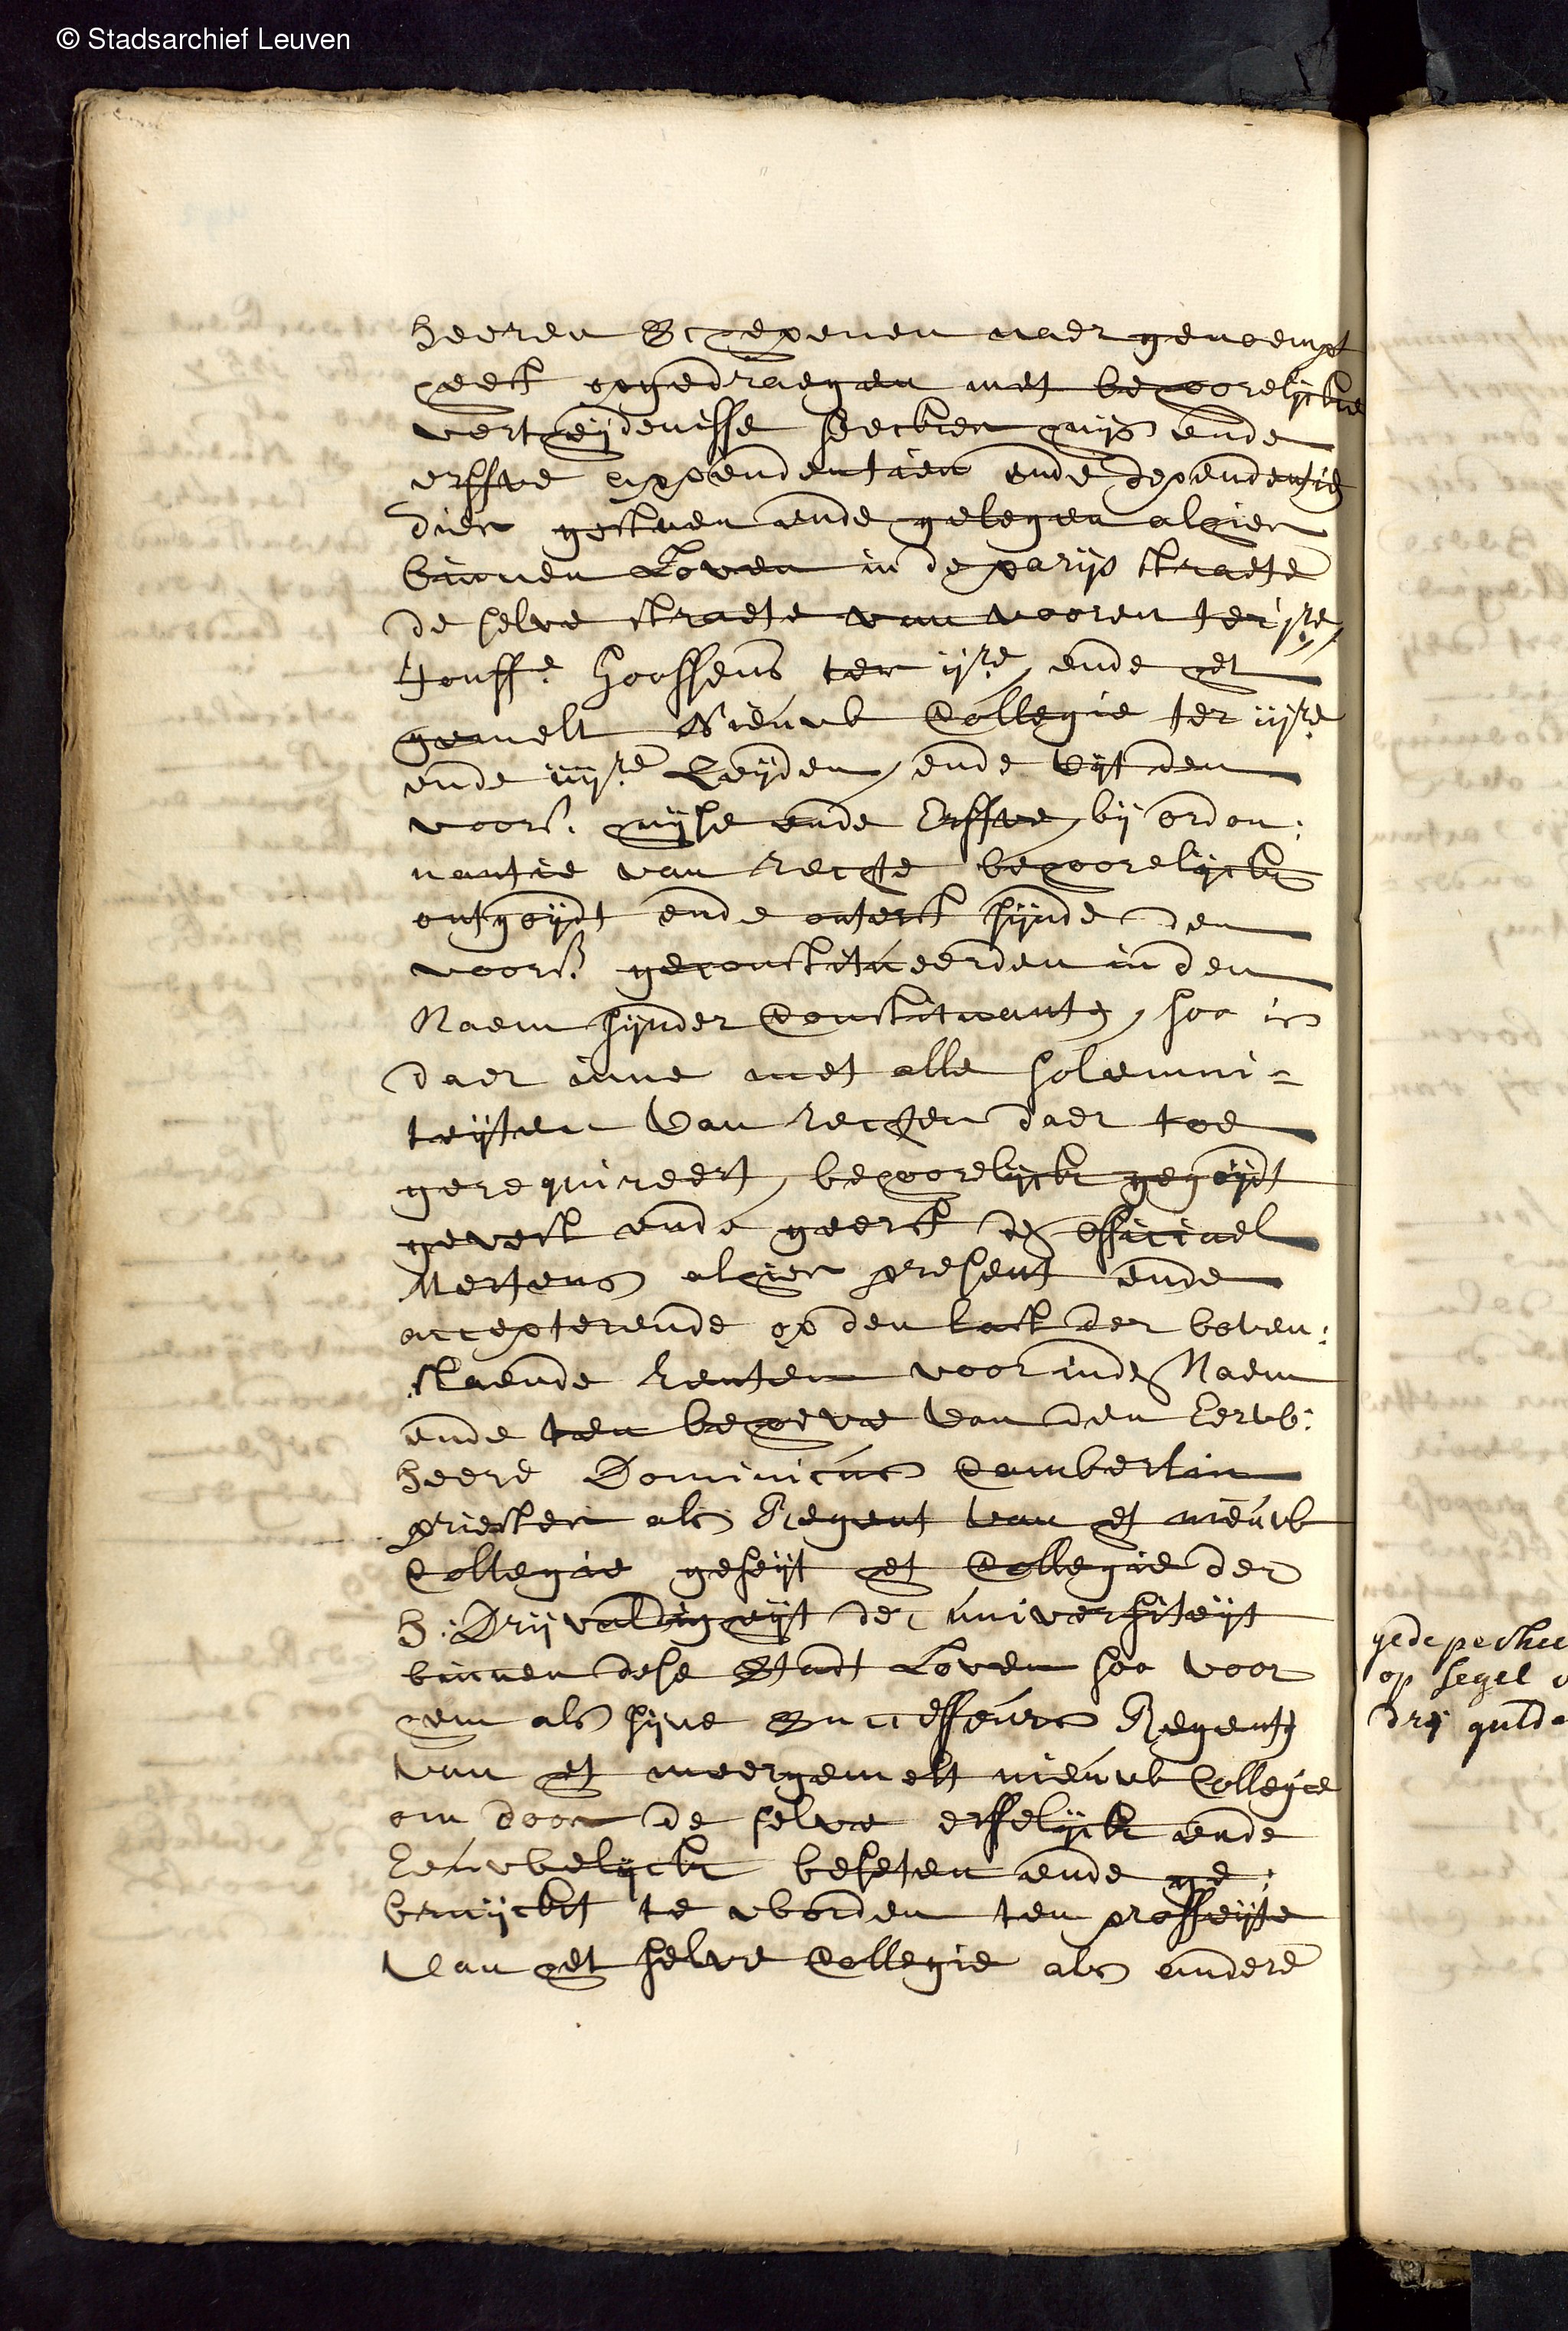 © Stadsarchief Leuven
heeren Schepenen naer genoempt
heeft opgedraegen met behoorelijcke
verthijdenisse seecker huijs ende
erffve appendentien ende dependentien
dier gestaen ende gelegen alhier
binnen Loven in de parijs straete
de selve straete van vooren ter jre,
Jouffe. Goossens ter ijre, ende het
gemelt Nieuw Collegie ter iijre
ende iiijre Zeijden, ende uijt den
voors. huijse ende Erffve, bij ordon:
nantie van rechte behoorelijck
ontgoijdt ende onterft sijnde den
voors. geconstitueerden in den
Naem sijnder Constituanten, soo is
daer inne met alle solemni=
teijten van rechten daer toe
gerequireert, behoorelijck gegoijdt
gevest ende geerft den officiael
Mertens alhier present ende
accepterende op den last der boven:
staende renten voor inden Naem
ende ten behoeve van den Eerw:
heere Dominicus Cambertin
priester als Regent van het nieuw
Collegie geseijt het Collegie der
H: Drijvuldigheijt der universiteijt
binnen dese Stadt Loven soo voor
hem als sijne Successeurs Regenten
van het meergemelt nieuw Collegie
om door de selve erffelijck ende
Eeuwelijck beseten ende ge:
bruijckt te worden ten proffijte
van het selve Collegie als andere
gedepechee
op segel v
drij guld